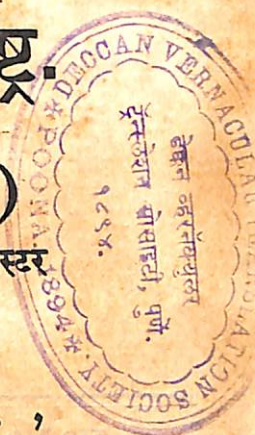 DECCAN VERNACULAR TRANSLATION SOCIETY.
* POONA. *
1894
डेक्कन व्हर्नाक्युलर
ट्रॅन्स्लेशन सोसाइटी, पुणें.
१८९४.
स्टर